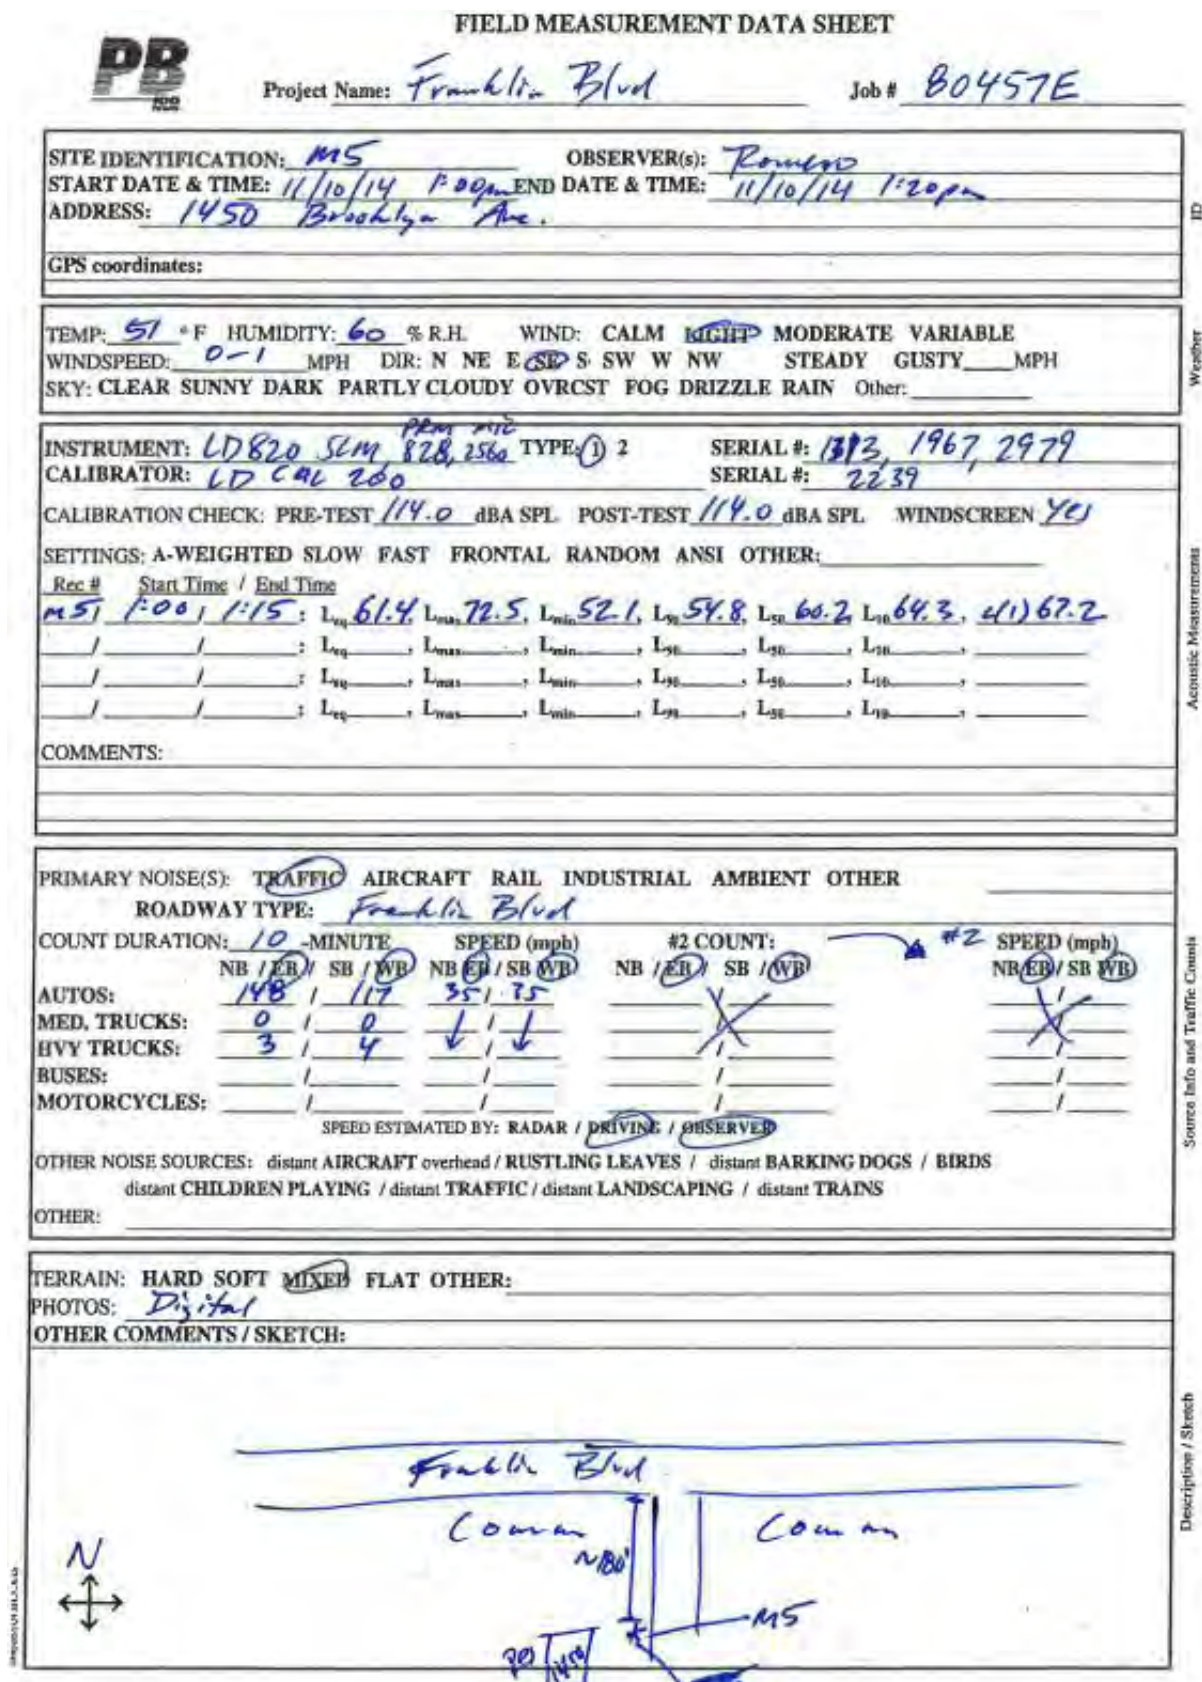 FIELD MEASUREMENT DATA SHEET
PB
100
Project Name: Franklin Blvd Job # 80457E
SITE IDENTIFICATION: M5 OBSERVER(s): Romero
START DATE & TIME: 11/10/14 1:00pm END DATE & TIME: 11/10/14 1:20pm
ADDRESS: 1450 Brooklyn Ave.
GPS coordinates:
ID
TEMP: 51 ° F HUMIDITY: 60 % R.H. WIND: CALM LIGHT MODERATE VARIABLE
WINDSPEED: 0-1 MPH DIR: N NE E SE S SW W NW STEADY GUSTY MPH
SKY: CLEAR SUNNY DARK PARTLY CLOUDY OVRCST FOG DRIZZLE RAIN Other:
Weather
PRM MIC
INSTRUMENT: LD820 SLM, 828, 2560 TYPE: 1 2 SERIAL #: 1313, 1967, 2979
CALIBRATOR: LD CAL 200 SERIAL #: 2239
CALIBRATION CHECK: PRE-TEST 114.0 dBA SPL POST-TEST 114.0 dBA SPL WINDSCREEN Yes
SETTINGS: A-WEIGHTED SLOW FAST FRONTAL RANDOM ANSI OTHER:
Rec # Start Time / End Time
M5 / 1:00 / 1:15 : Leq 61.4, Lmax 72.5, Lmin 52.1, L90 54.8, L50 60.2, L10 64.3, L(1) 67.2
/ / : Leq , Lmax , Lmin , L90 , L50 , L10 ,
/ / : Leq , Lmax , Lmin , L90 , L50 , L10 ,
/ / : Leq , Lmax , Lmin , L90 , L50 , L10 ,
COMMENTS:
Acoustic Measurements
PRIMARY NOISE(S): TRAFFIC AIRCRAFT RAIL INDUSTRIAL AMBIENT OTHER
ROADWAY TYPE: Franklin Blvd
COUNT DURATION: 10 -MINUTE SPEED (mph) #2 COUNT: #2 SPEED (mph)
NB / EB / SB / WB NB EB / SB WB NB / EB / SB / WB NB/EB / SB WB
AUTOS: 148 / 117 35 / 35 / /
MED. TRUCKS: 0 / 0 / / /
HVY TRUCKS: 3 / 4 / / /
BUSES: / / / /
MOTORCYCLES: / / / /
SPEED ESTIMATED BY: RADAR / DRIVING / OBSERVER
OTHER NOISE SOURCES: distant AIRCRAFT overhead / RUSTLING LEAVES / distant BARKING DOGS / BIRDS
distant CHILDREN PLAYING / distant TRAFFIC / distant LANDSCAPING / distant TRAINS
OTHER:
Source Info and Traffic Counts
TERRAIN: HARD SOFT MIXED FLAT OTHER:
PHOTOS: Digital
OTHER COMMENTS / SKETCH:
Franklin Blvd
Comm Comm
~180'
N
M5
res 1450
Description / Sketch